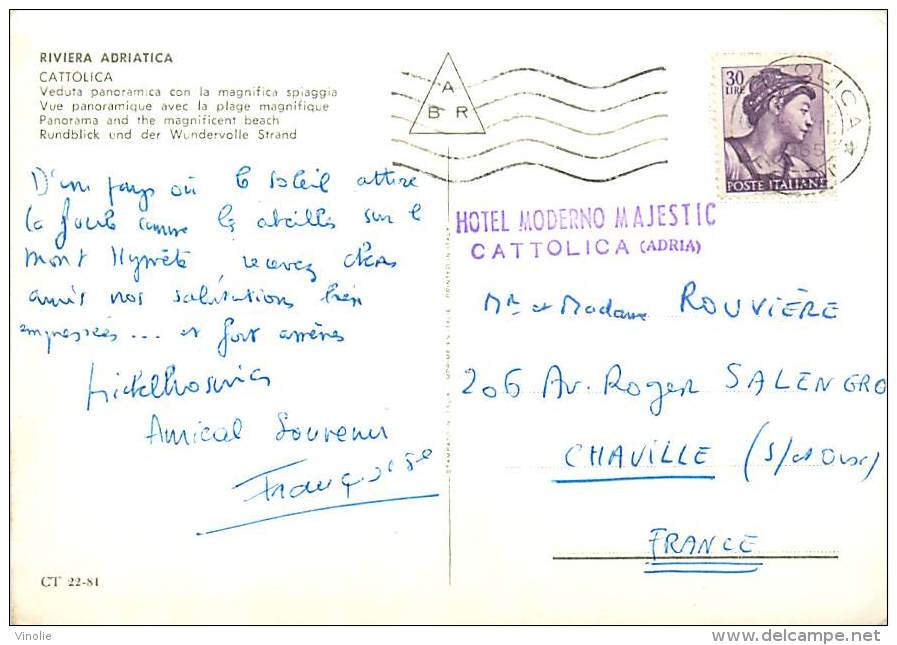 RIVIERA ADRIATICA
CATTOLICA
Veduta panoramica con la magnifica spiaggia
Vue panoramique avec la plage magnifique
Panorama and the magnificent beach
Rundblick und der Wundervolle Strand
D'un pays où le soleil attire
la foule comme les abeilles sur le
mont Hymète, recevez chers
amis nos salutations bien
empressées ... et fort
Amical Souvenir
Françoise
CT 22-81
A
B R
30
LIRE
POSTE ITALIANE
HOTEL MODERNO MAJESTIC
CATTOLICA (ADRIA)
Mr et Madame ROUVIÈRE
206 Av. Roger SALENGRO
CHAVILLE (S/et Oise)
FRANCE
Vinolie
delcampe.net